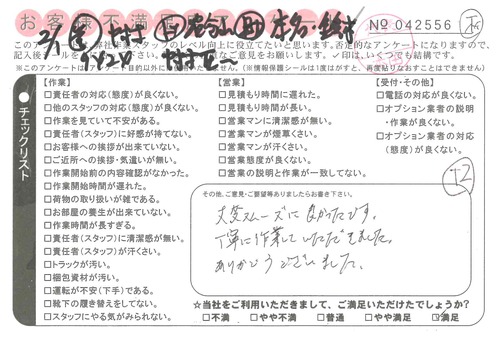 お客様不満足
№ 042556
この
弊社作業スタッフのレベル向上に役立てたいと思います。否定的なアンケートになりますので、
記入後
ご意見をお願いします。✓印は、いくつでも結構です。
※このアンケートは
(※情報保護シールは1度はがすと、再度貼りなおすことはできません)
●チェックリスト
【作業】
□責任者の対応(態度)が良くない。
□他のスタッフの対応(態度)が良くない。
□作業を見ていて不安がある。
□責任者(スタッフ)に好感が持てない。
□お客様への挨拶が出来ていない。
□ご近所への挨拶・気遣いが無い。
□作業開始前の内容確認がなかった。
□作業開始時間が遅れた。
□荷物の取り扱いが雑である。
□お部屋の養生が出来ていない。
□作業時間が長すぎる。
□責任者(スタッフ)に清潔感が無い。
□責任者(スタッフ)が汗くさい。
□トラックが汚い。
□梱包資材が汚い。
□運転が不安(下手)である。
□靴下の履き替えをしてない。
□スタッフにやる気がみられない。
【営業】
□見積もり時間に遅れた。
□見積もり時間が長い。
□営業マンに清潔感が無い。
□営業マンが煙草くさい。
□営業マンが汗くさい。
□営業態度が良くない。
□営業の説明と作業が一致してない。
【受付・その他】
□電話の対応が良くない。
□オプション業者の説明
・作業が良くない。
□オプション業者の対応
(態度)が良くない。
+2
その他、ご意見・ご要望等ありましたらお書き下さい。
大変スムーズに良かったです。
丁寧に作業していただきました。
ありがとうございました。
☆当社をご利用いただきまして、ご満足いただけたでしょうか?
□不満 □やや不満 □普通 □やや満足 ☑満足